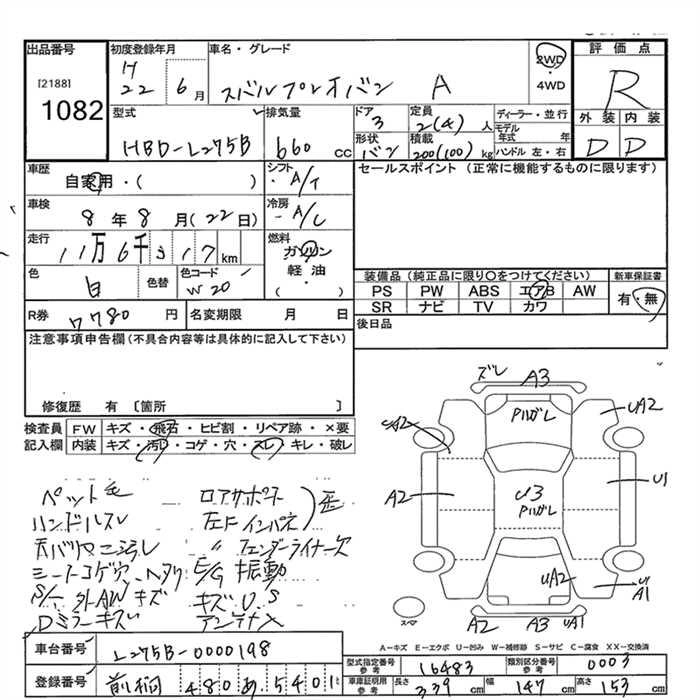 出品番号
[2188]
1082
初度登録年月
H
22 6月
車名・グレード
スバル プレオバン A
2WD
・
4WD
評価点
R
外装 内装
D D
型式
HBD-L275B
排気量
660 cc
ドア
3
形状
バン
定員
2(4)人
積載
200(100)kg
ディーラー・並行
モデル
年式 年
ハンドル 左・右
車歴
自家用・( )
シフト
A/T
セールスポイント(正常に機能するものに限ります)
車検
8年8月(22日)
冷房
A/C
走行
11万6千317km
燃料
ガソリン
軽油
( )
色
白
色替
色コード
W20
装備品(純正品に限り○をつけてください)
新車保証書
PS PW ABS エアB AW
SR ナビ TV カワ
有・無
R券
7780円
名変期限 月 日
後日品
注意事項申告欄(不具合内容等は具体的に記入して下さい)
修復歴 有 〔箇所 〕
検査員
記入欄
FW キズ・飛石・ヒビ割・リペア跡・×要
内装 キズ・汚れ・コゲ・穴・スレ・キレ・破レ
ペット毛
ハンドルスレ
天バリヤニ汚レ
シートコゲ穴、ヘタリ
S/、外AWキズ
Dミラーキズ
ロアサポート
左Fインパネ
〃フェンダーライナー欠
E/G振動
キズU.S
アンテナ×
ズレ
A3
Pハガレ
UA2
UA2
A2
U3
Pハガレ
U1
UA2
U
A1
スペア
A2 A3 UA1
A-キズ E-エクボ U-凹み W-補修跡 S-サビ C-腐食 XX-交換済
車台番号
L275B-0000198
登録番号
前橋 480 あ 5401
型式指定番号
参考
16483
類別区分番号
参考
0003
車庫証明用
参考
長さ 339cm
幅 147cm
高さ 153cm